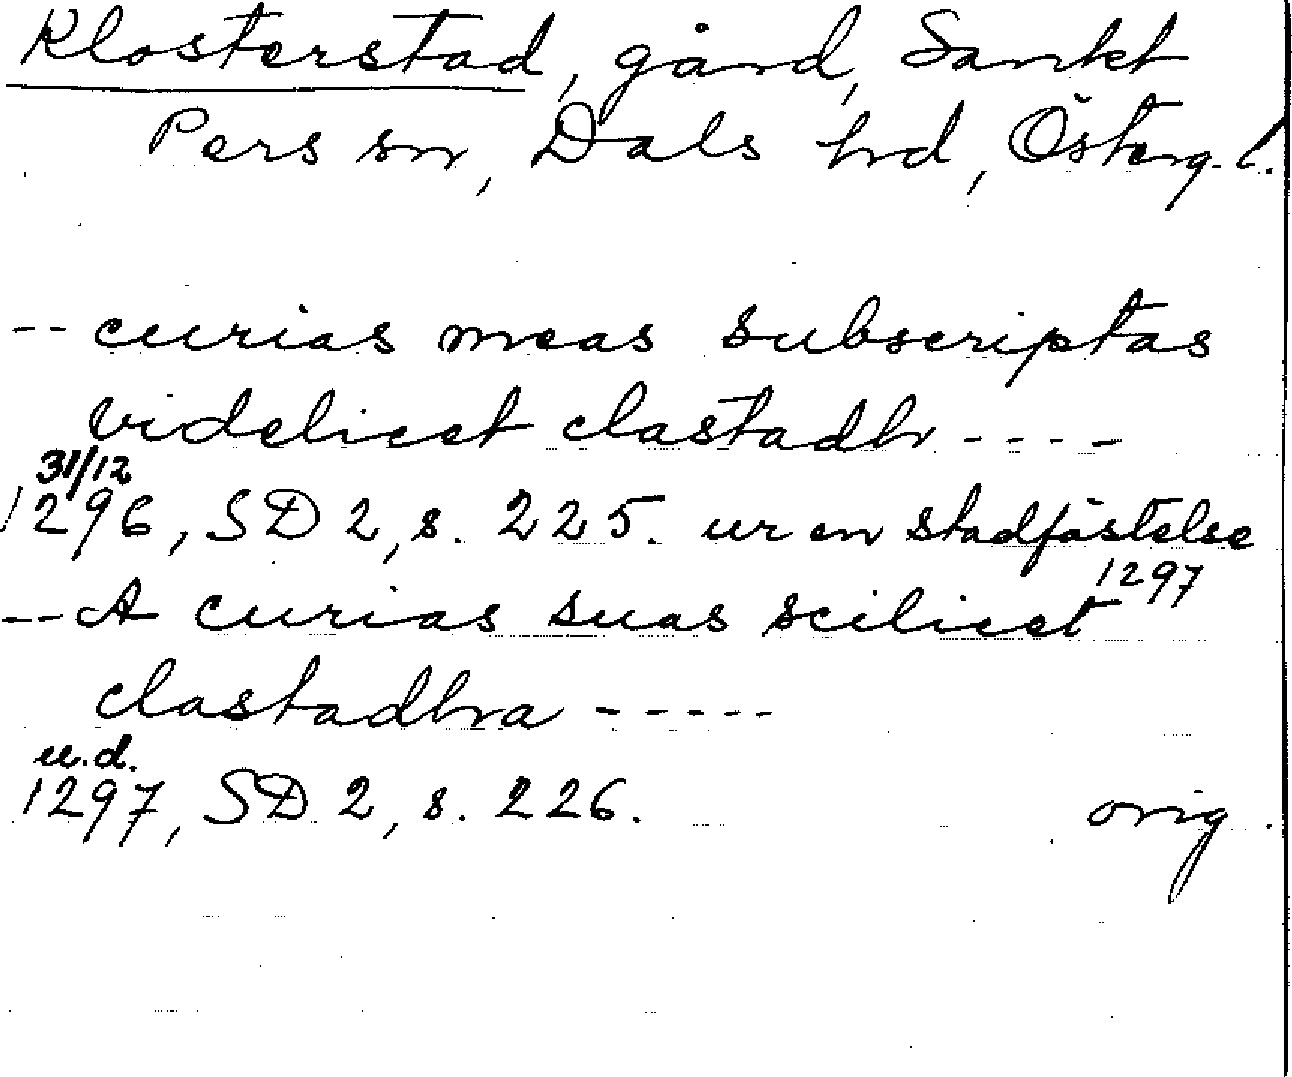 Klosterstad, gård, Sankt
Pers sn, Dals hd, Österg. l.
-- curias meas subscriptas
videlicet clastadh ----
31/12
1296, SD 2, s. 225. ur en stadfästelse
1297
-- A curias suas scilicet
clastadhra -----
u.d.
1297, SD 2, s. 226. orig.